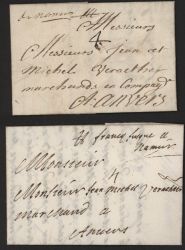 de Namur
Messieurs
4
Messieurs Jean et
Michel
marchands en Compag
A Anvers
franc jusque a
Namur
Monsieur
Monsieur Jean Michel
marchand a
Anvers